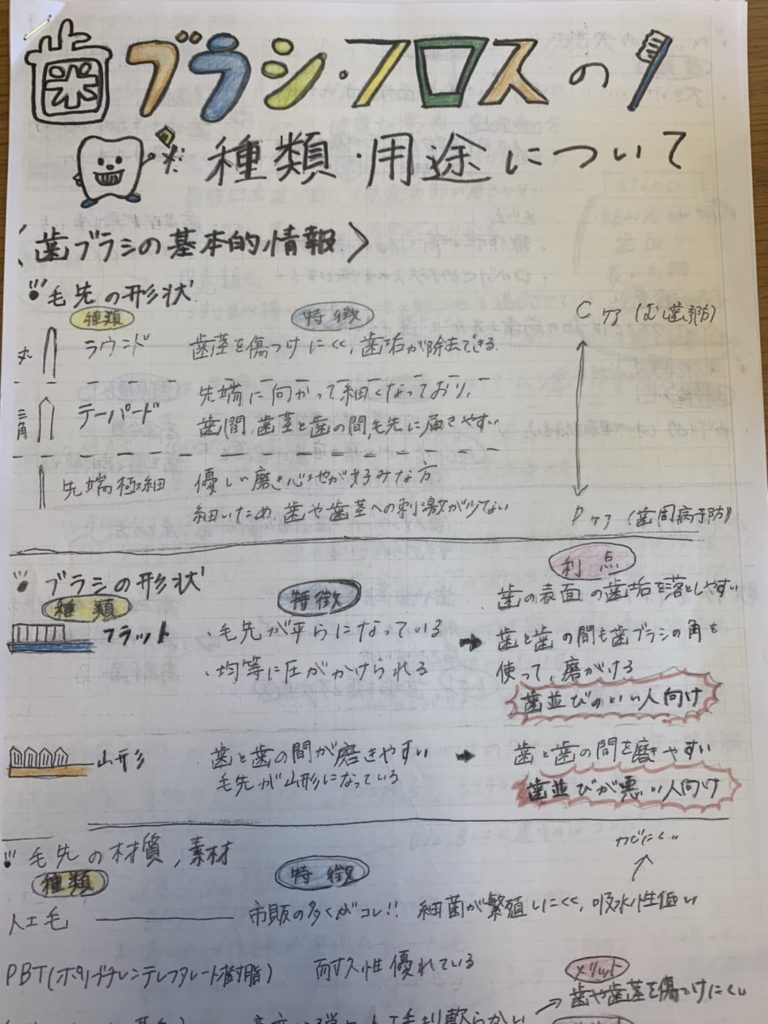 歯ブラシ・フロスの
種類・用途について
〈歯ブラシの基本的情報〉
毛先の形状
種類 特徴
Cケア (むし歯予防)
丸 ラウンド 歯茎を傷つけにくく、歯垢が除去できる.
三角 テーパード 先端に向かって細くなっており,
歯間、歯茎と歯の間,毛先に届きやすい
先端極細 優しい磨き心地が好みな方
細いため、歯や歯茎への刺激が少ない
Pケア (歯周病予防)
ブラシの形状
種類 特徴 利点
フラット ・毛先が平らになっている
・均等に圧がかけられる
歯の表面の歯垢を落としやすい
歯と歯の間も歯ブラシの角を
使って、磨がける
歯並びのいい人向け
山形 歯と歯の間が磨きやすい
毛先が山形になっている
歯と歯の間を磨きやすい
歯並びが悪い人向け
毛先の材質,素材
種類 特徴
カビにくい
人工毛 市販の多くがコレ!! 細菌が繁殖しにくく、吸水性低い
PBT(ポリブチレンテレフタレート樹脂) 耐久性優れている
メリット
歯や歯茎を傷つけにくい
人工毛より軟らかい